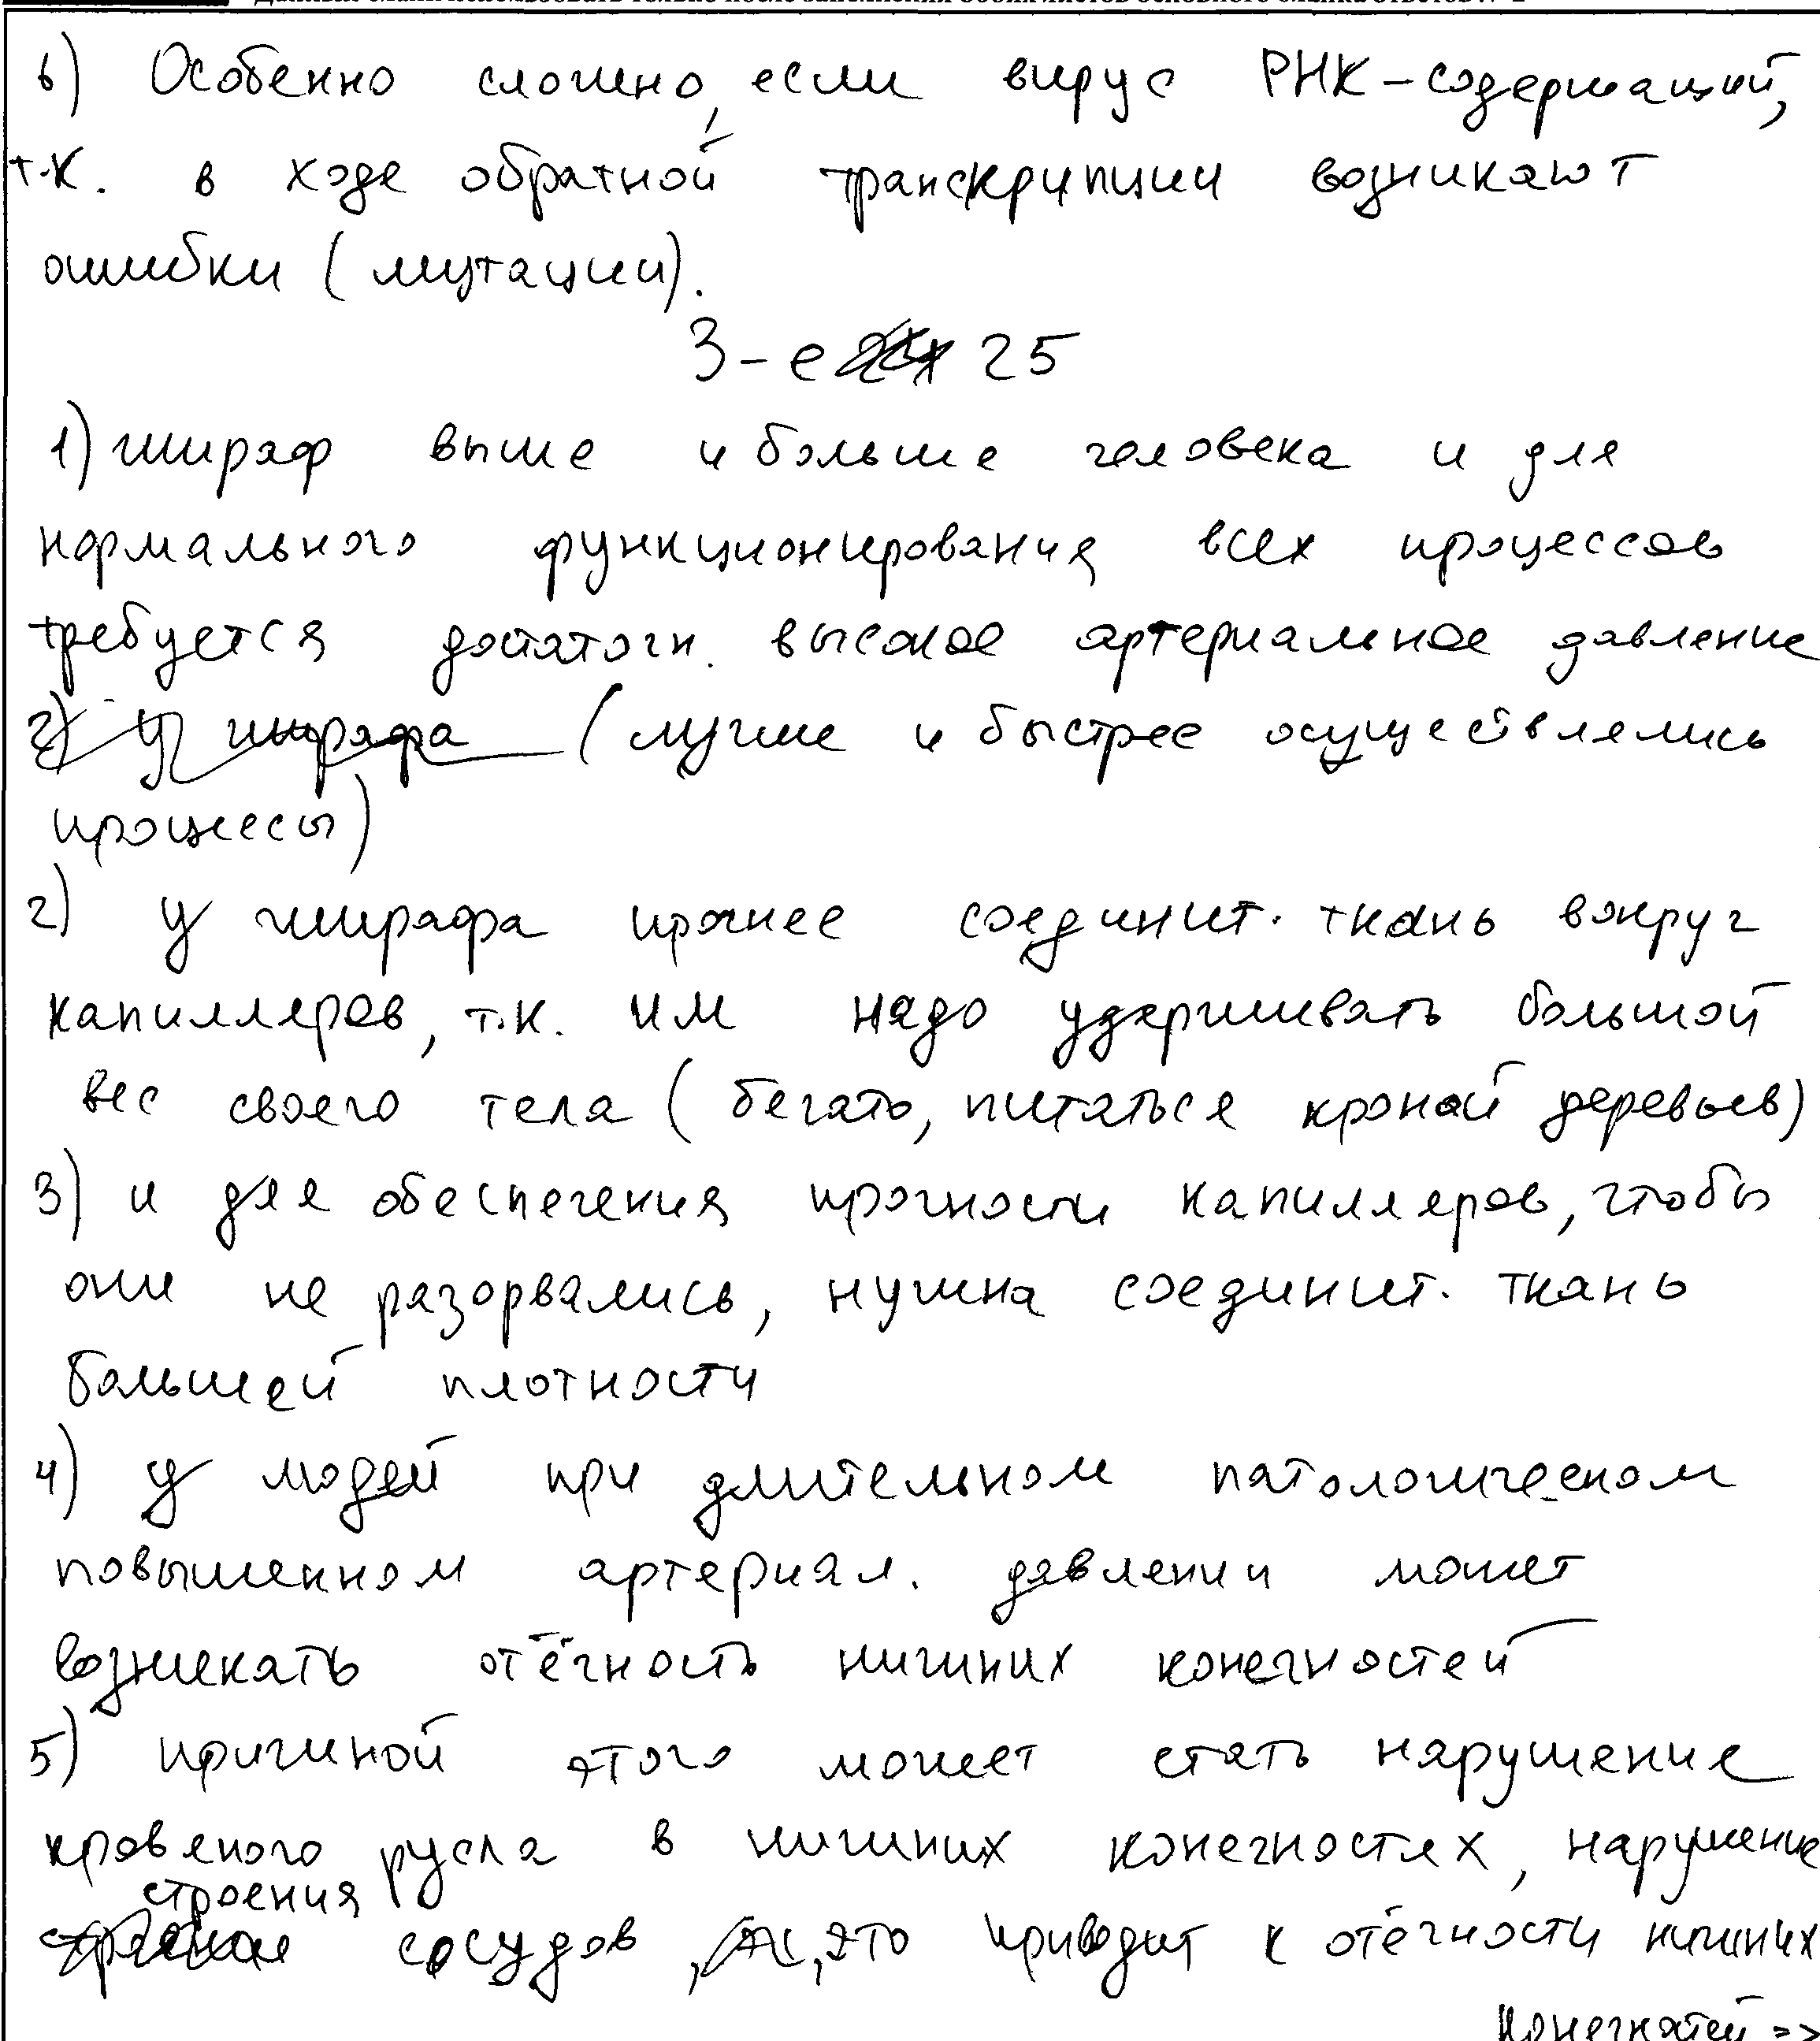 6) Особенно сложно, если вирус РНК-содержащий,
т.к. в ходе обратной транскрипции возникают
ошибки (мутации).
3-е 25
1) жираф выше и больше человека и для
нормального функционирования всех процессов
требуется достаточн. высокое артериальное давление
2) у жирафа (лучше и быстрее осуществлялись
процессы)
2) у жирафа прочнее соединит. ткань вокруг
капилляров, т.к. им надо удерживать большой
вес своего тела (бегать, питаться кроной деревьев)
3) и для обеспечения прочности капилляров, чтобы
они не разорвались, нужна соединит. ткань
большей плотности
4) у людей при длительном патологическом
повышенном артериал. давлении может
возникать отёчность нижних конечностей
5) причиной этого может стать нарушение
кровяного русла в нижних конечностях, нарушение
строения
сосудов, это приводит к отёчности нижних
конечностей =>